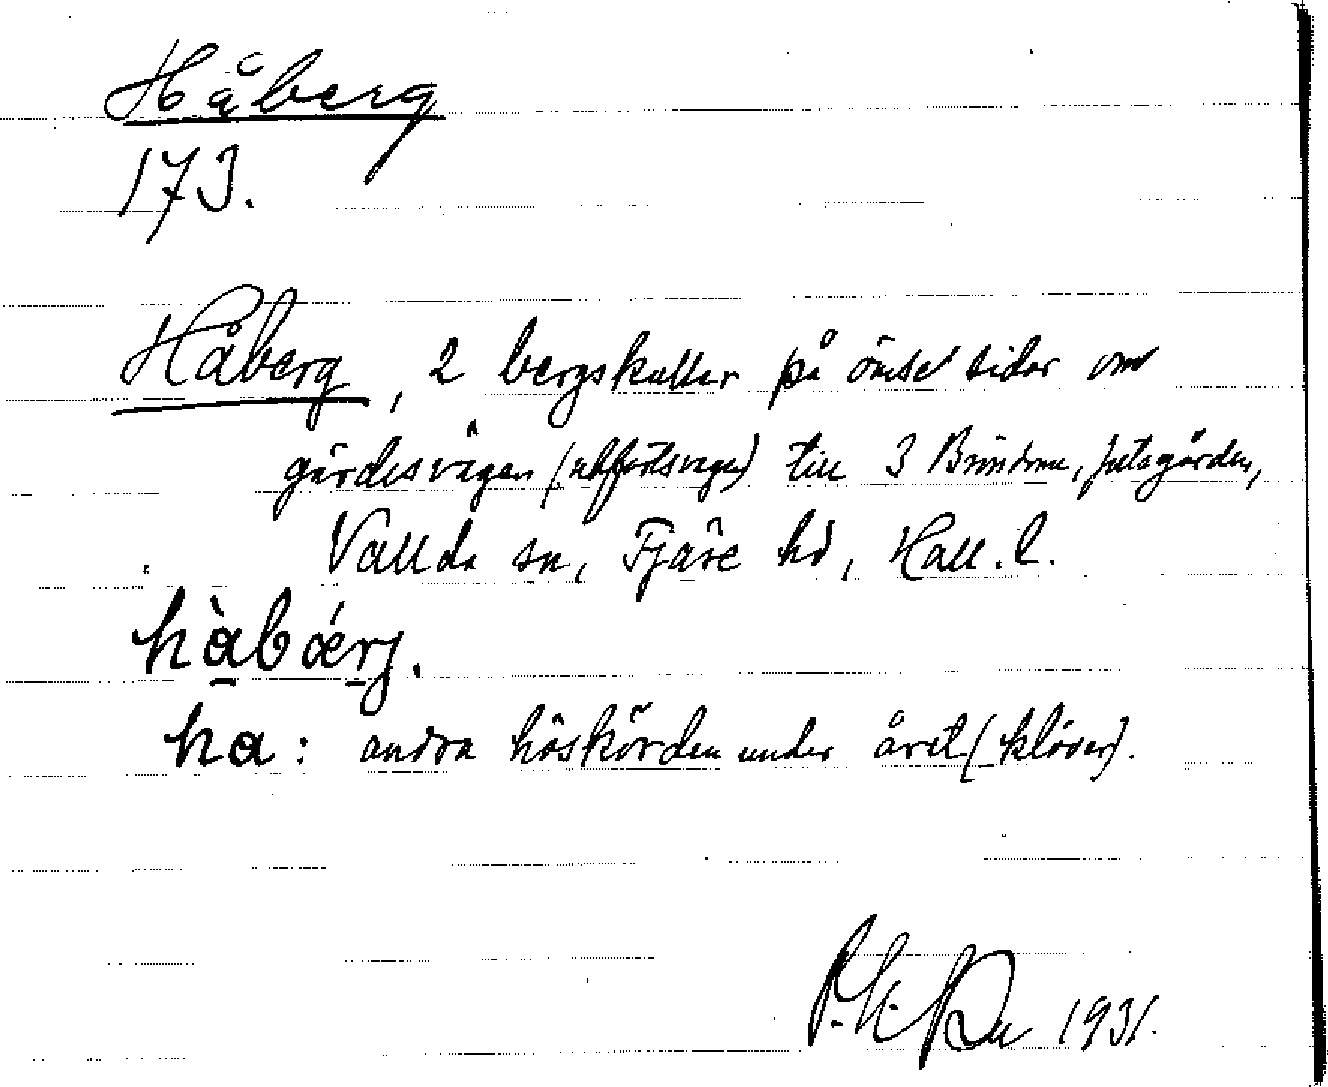 Håberg
173.
Håberg, 2 bergskullar på ömse sidor om
gärdesvägen (utfartsvägen) till 3
Vallda sn, Fjäre hd, Hall. l.
hàbǽrj.
ha: andra höskörden under året (klöver).
1931.